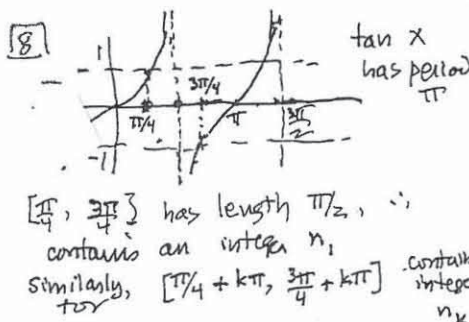 8
1
tan x
has period
π
3π/4
π/4
π
3π/2
-1
[π/4, 3π/4] has length π/2, ∴
contains an integer n₁
similarly,
for [π/4 + kπ, 3π/4 + kπ] contain
integer
n_k